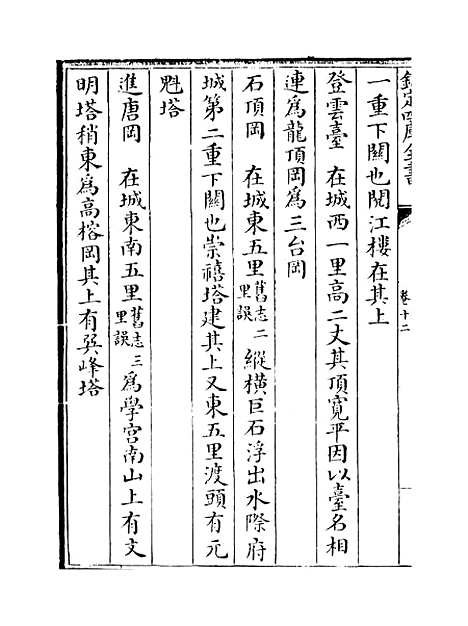 欽定四庫全書
卷十二
一重下關也閱江樓在其上
登雲臺　在城西一里高二丈其頂寬平因以臺名相
連為龍頂岡為三台岡
石頂岡　在城東五里舊志二里誤縱橫巨石浮出水際府
城第二重下關也崇禧塔建其上又東五里渡頭有元
魁塔
進唐岡　在城東南五里舊志三里誤為學宮南山上有文
明塔稍東為高榕岡其上有巽峰塔